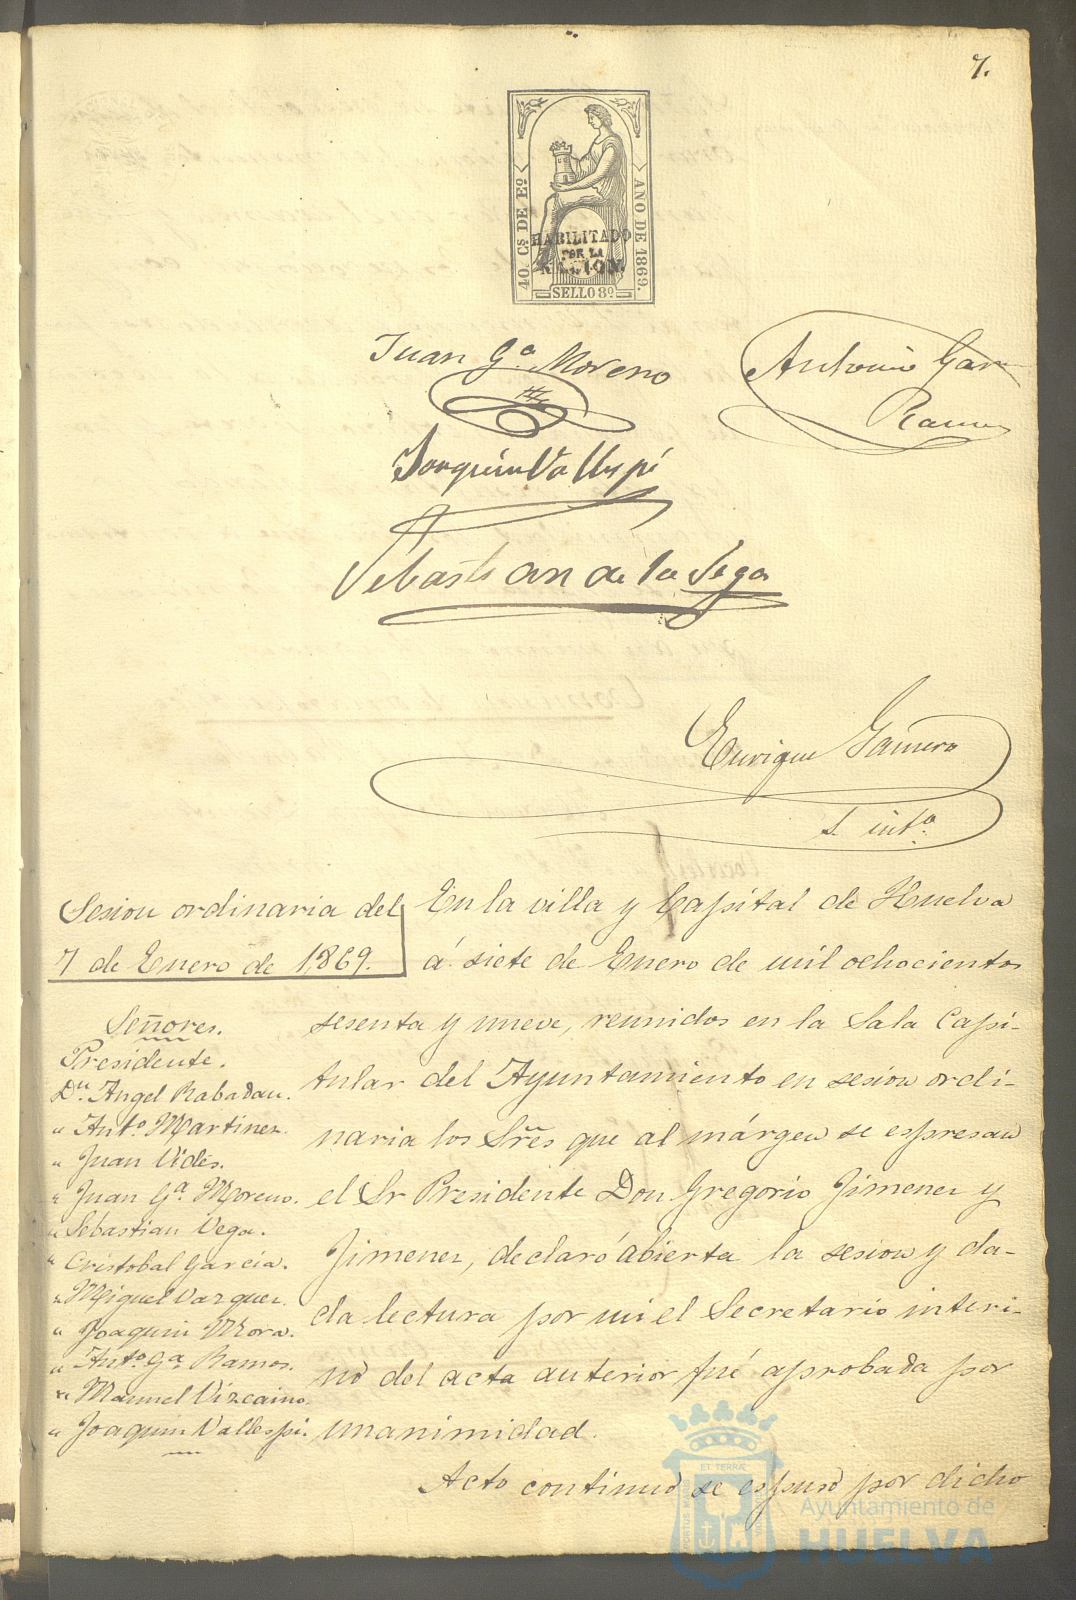 7.
40. Cs DE Eo.
AÑO DE 1869.
HABILITADO
POR LA
NACION.
SELLO 8º
Juan Ga. Moreno
Antonio Gar
Ramos
Joaquin Vallespi
Sebastian de la Vega
Enrique Gamero
S. into.
Sesion ordinaria del
7 de Enero de 1,869.
Señores.
Presidente.
Dn. Angel Rabadan.
" Anto. Martinez.
" Juan Vides.
" Juan Ga. Moreno.
" Sebastian Vega.
" Cristobal Garcia.
" Miguel Vazquez.
" Joaquin Mora.
" Anto. Ga. Ramos.
" Manuel Vizcaino.
" Joaquin Vallespi.
En la villa y Capital de Huelva
á siete de Enero de mil ochocientos
sesenta y nueve, reunidos en la Sala Capi-
tular del Ayuntamiento en sesion ordi-
naria los Sres que al márgen se espresan
el Sr Presidente Don Gregorio Jimenez y
Jimenez, declaró abierta la sesion y da-
da lectura por mi el Secretario interi-
no del acta anterior fué aprobada por
unanimidad.
Acto continuo se espuso por dicho
Ayuntamiento de
HUELVA